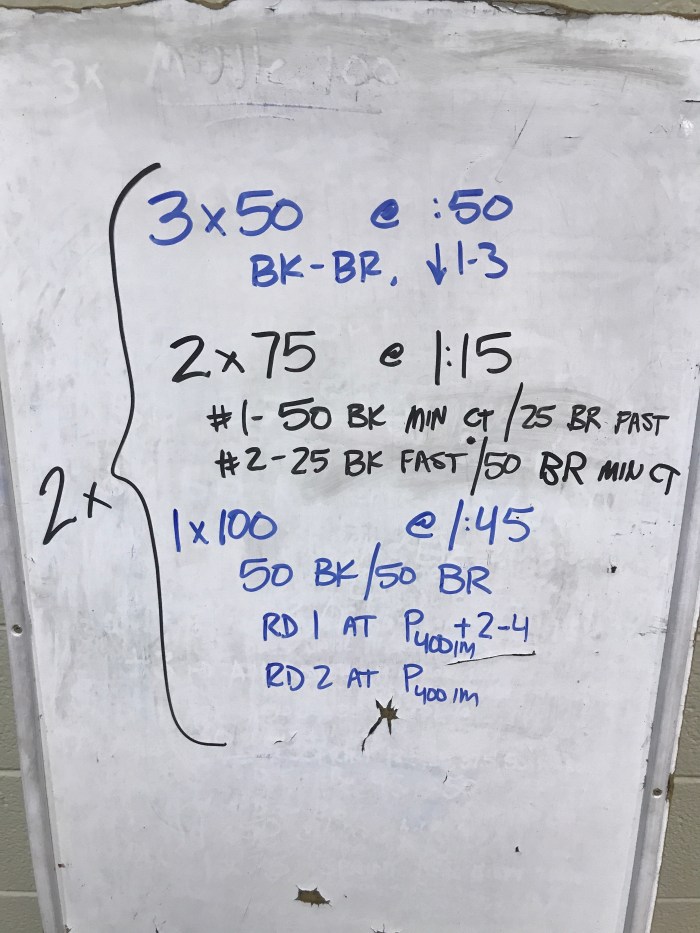 3x50 @ :50
BK-BR, ↓1-3
2x75 @ 1:15
#1- 50 BK MIN CT/25 BR FAST
#2-25 BK FAST/50 BR MIN CT
2x
1x100 @ 1:45
50 BK/50 BR
RD 1 AT P400IM+2-4
RD 2 AT P400IM